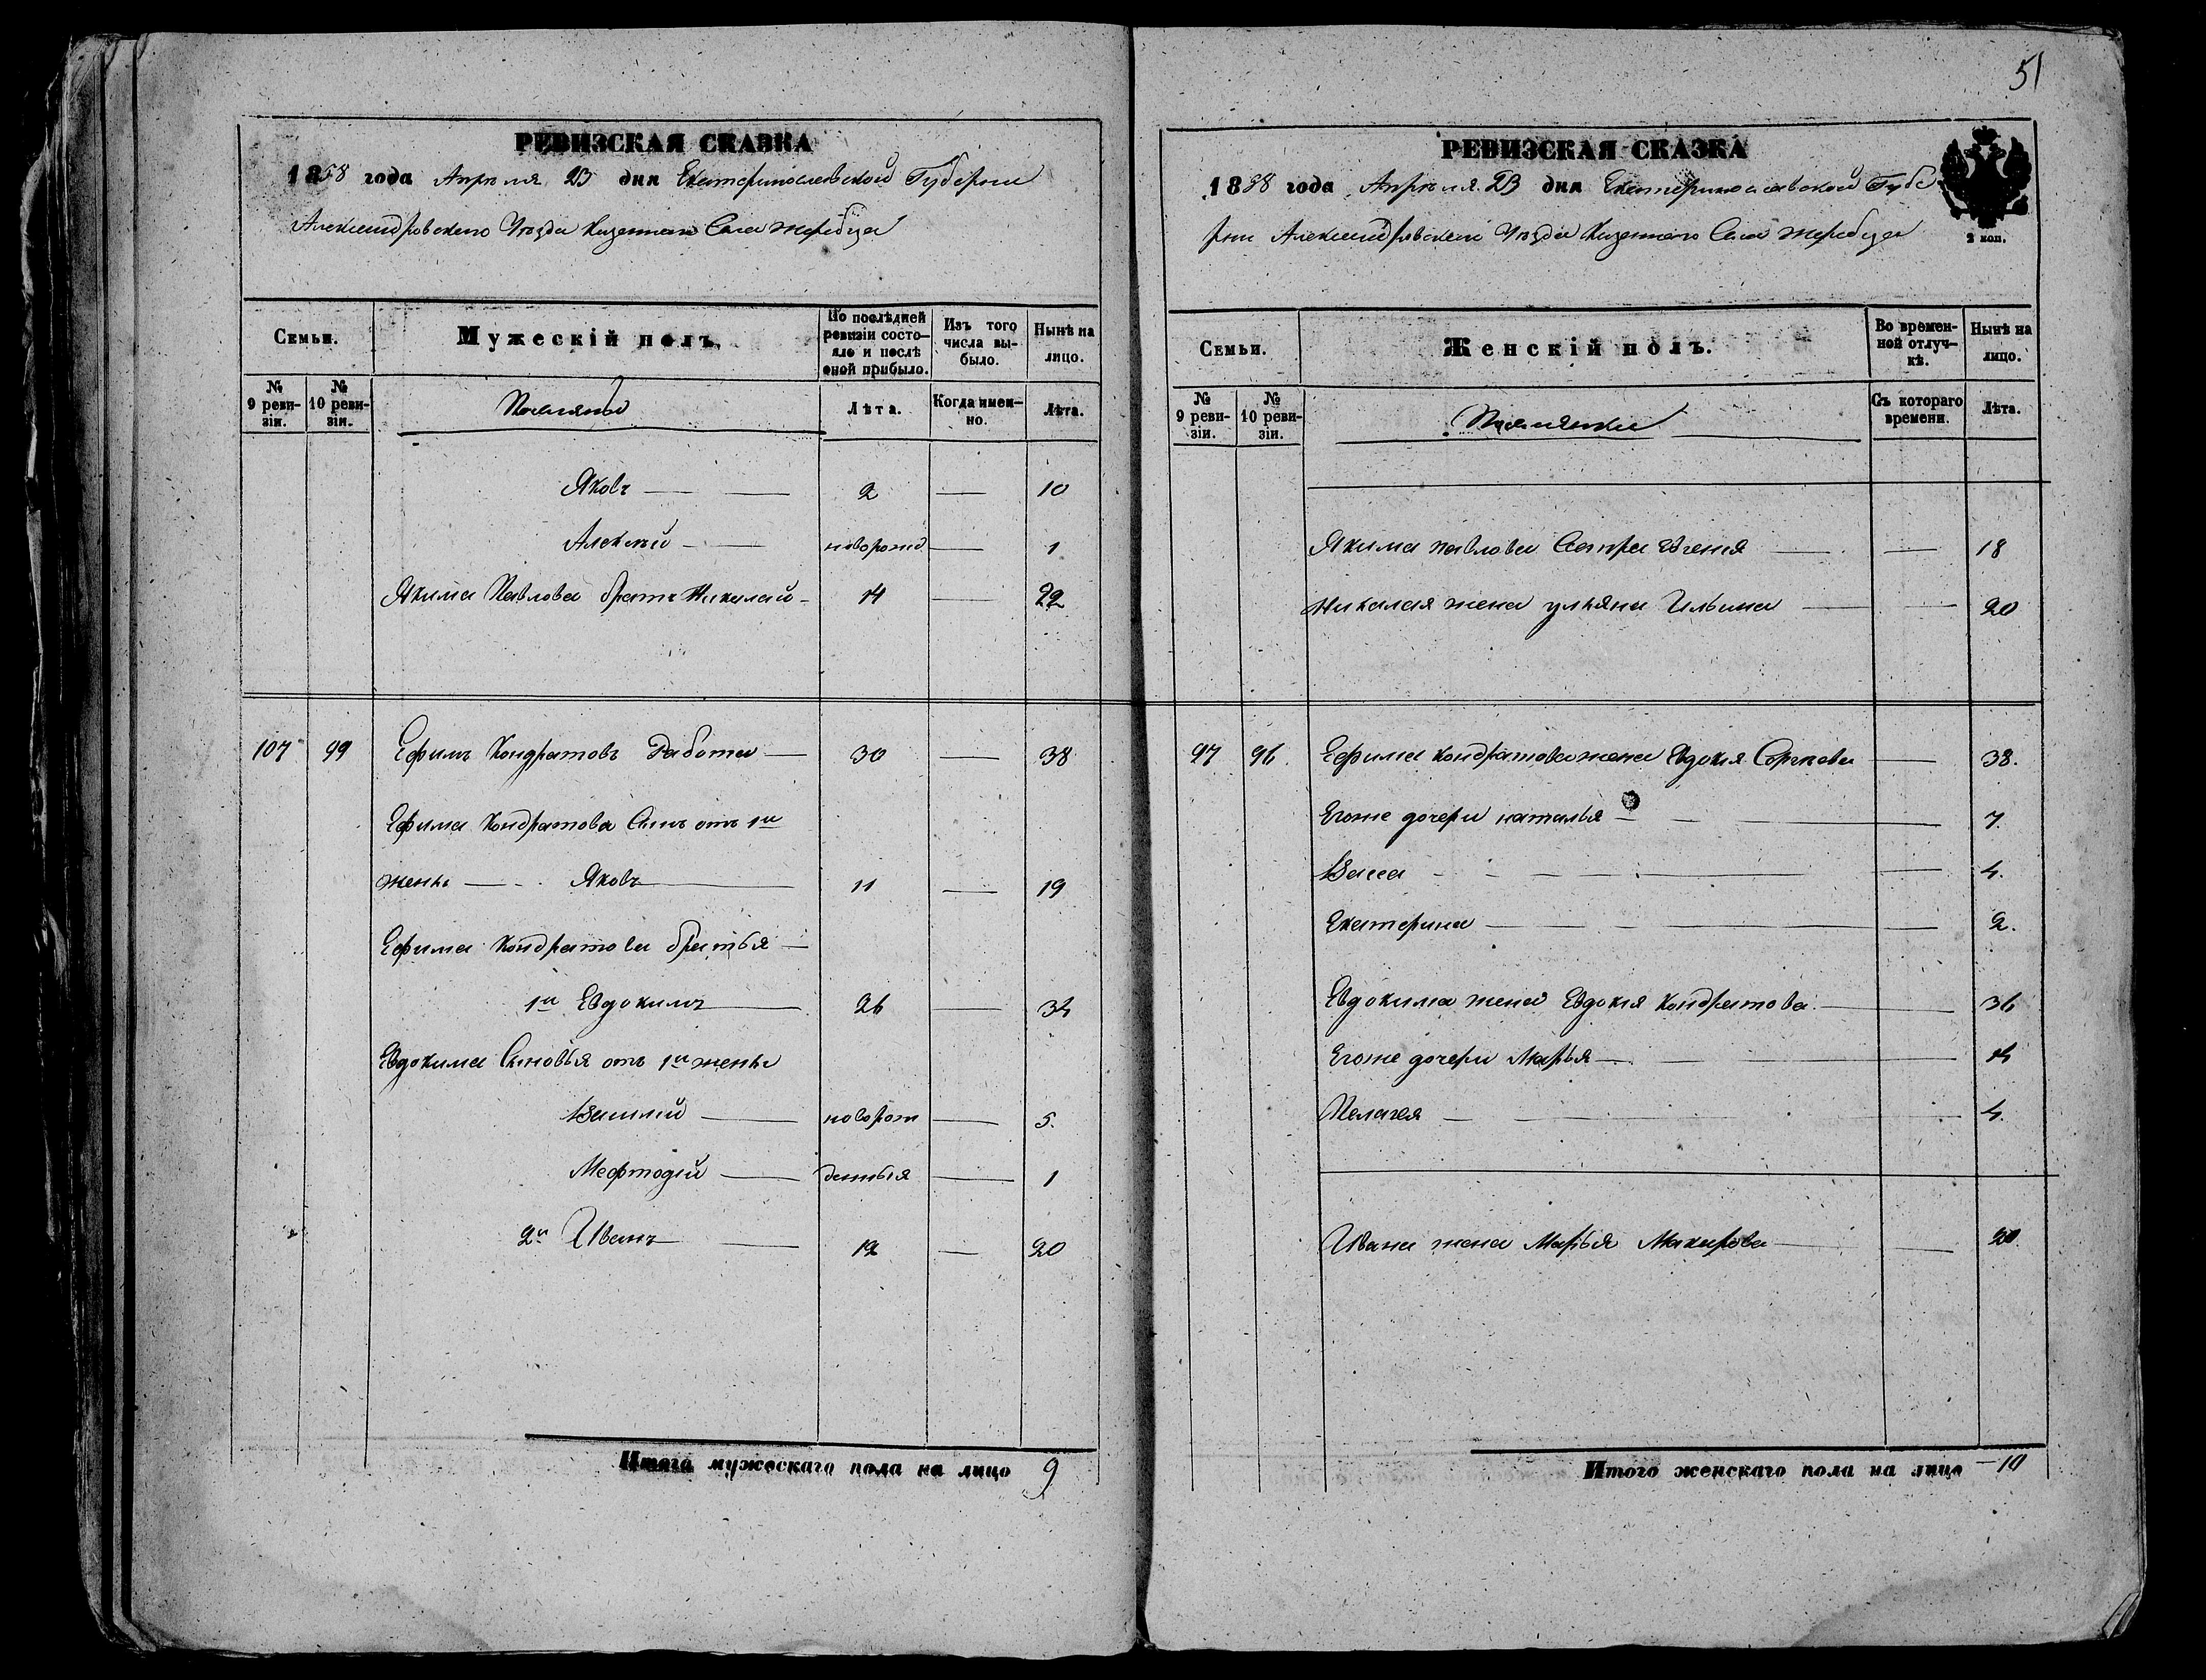 РЕВИЗСКАЯ СКАЗКА
1858 года Апреля 23 дня Екатеринославской Губернии
Александровского Уезда Казенного Села Жеребца
Семьи.
Мужескій полъ.
По послѣдней ревизіи состояло и послѣ оной прибыло.
Изъ того числа выбыло.
Нынѣ на лицо.
№ 9 ревизіи.
№ 10 ревизіи.
Лѣта.
Когда именно.
Лѣта.
Яковъ 2 — 10
Алексѣй новорожд — 1
Якима Павлова братъ Николай 14 — 22
107 99 Ефимъ Кондратовъ Работа 30 — 38
Ефима Кондратова Сынъ отъ 1й
жены Яковъ 11 — 19
Ефима Кондратова братья
1й Евдокимъ 26 — 34
Евдокима Сыновья отъ 1й жены
Василий новорож — 5.
Мефтодий денныя — 1
2й Иванъ 12 — 20
Итого мужескаго пола на лицо 9
51
РЕВИЗСКАЯ СКАЗКА
1858 года Апреля 23 дня Екатеринославской Губе
рни Александровского Уезда Казенного Села Жеребца
2 коп.
Семьи.
Женскій полъ.
Во временной отлучкѣ.
Нынѣ на лицо.
№ 9 ревизіи.
№ 10 ревизіи.
Съ котораго времени.
Лѣта.
Якима Павлова Сестра Евгения — 18
Николая жена Ульяна Ильина — 20
97 96. Ефима Кондратова жена Евдокия — 38.
Егоже дочери Наталья — 7.
Васса — 4.
Екатерина — 2.
Евдокима жена Евдокия Кондратова — 36
Егоже дочери Марья — 14
Пелагея — 4.
Ивана жена Марья Макарова — 20.
Итого женскаго пола на лицо — 10